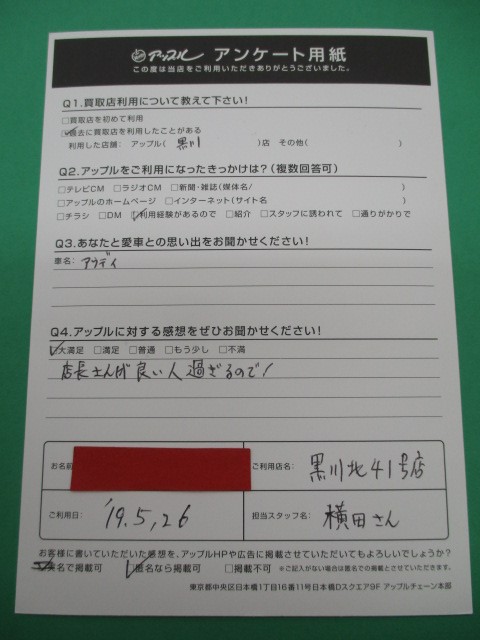 アップル アンケート用紙
この度は当店をご利用いただきありがとうございました。
Q1.買取店利用について教えて下さい!
□買取店を初めて利用
☑過去に買取店を利用したことがある
利用した店舗: アップル( 黒川 )店 その他( )
Q2.アップルをご利用になったきっかけは?(複数回答可)
□テレビCM □ラジオCM □新聞・雑誌(媒体名/ )
□アップルのホームページ □インターネット(サイト名 )
□チラシ □DM ☑利用経験があるので □紹介 □スタッフに誘われて □通りがかりで
Q3.あなたと愛車との思い出をお聞かせください!
車名: アウディ
Q4.アップルに対する感想をぜひお聞かせください!
☑大満足 □満足 □普通 □もう少し □不満
店長さんが良い人過ぎるので!
お名前 ご利用店名: 黒川北41号店
ご利用日: '19.5,26 担当スタッフ名: 横田さん
お客様に書いていただいた感想を、アップルHPや広告に掲載させていただいてもよろしいでしょうか?
実名で掲載可 ☑匿名なら掲載可 □掲載不可 ※ご記入がない場合は匿名での掲載とさせていただきます。
東京都中央区日本橋1丁目16番11号日本橋Dスクエア9F アップルチェーン本部